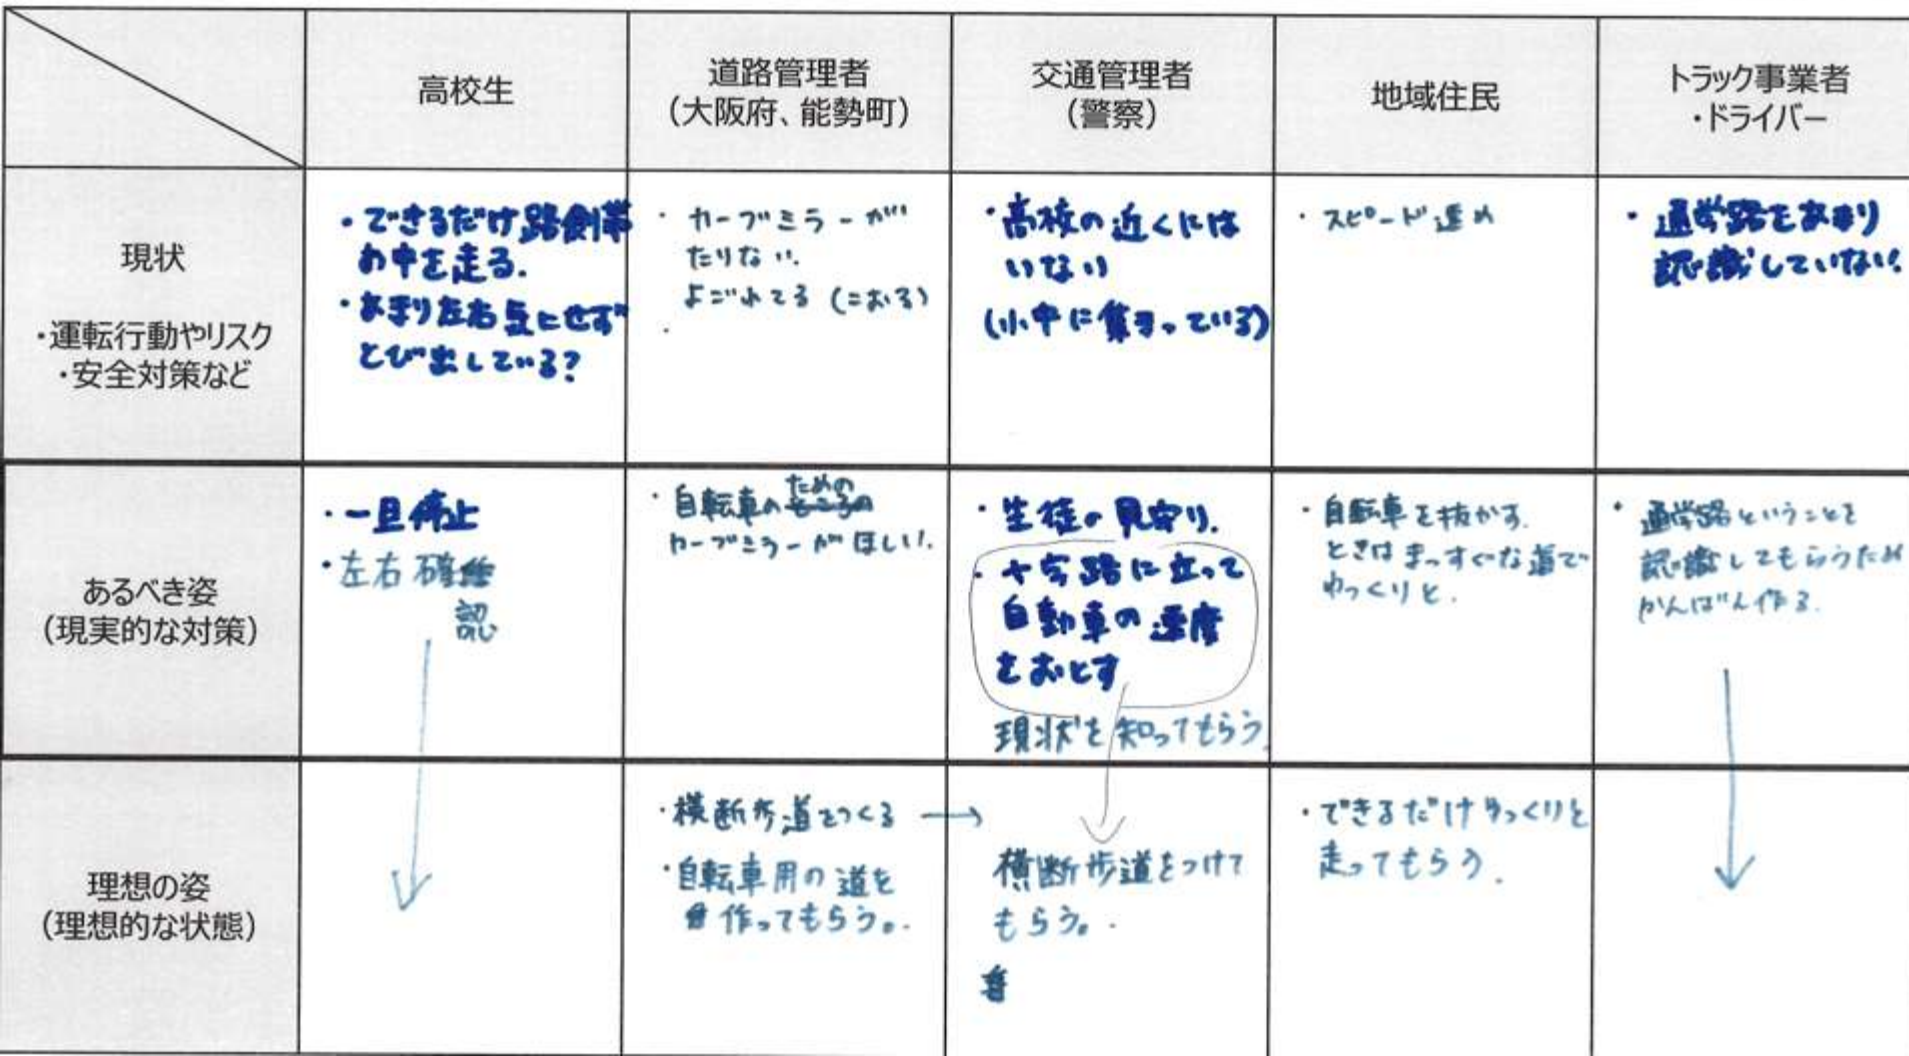 高校生
道路管理者
（大阪府、能勢町）
交通管理者
（警察）
地域住民
トラック事業者
・ドライバー
現状
・運転行動やリスク
・安全対策など
・できるだけ路側帯
の中を走る.
・あまり左右気にせず
とび出している?
・カーブミラーが
たりない.
よごれてる (こおる)
・高校の近くには
いない
(小中に集まっている)
・スピード速め
・通学路をあまり
認識していない.
あるべき姿
（現実的な対策）
・一旦停止
・左右確
認
・自転車のための
カーブミラーがほしい.
・生徒の見守り.
・十字路に立って
自動車の速度
をおとす
現状を知ってもらう.
・自転車を抜かす.
ときはまっすぐな道で
ゆっくりと.
・通学路ということを
認識してもらうため
かんばん作る.
理想の姿
（理想的な状態）
・横断歩道をつくる →
・自転車用の道を
作ってもらう。.
横断歩道をつけて
もらう。.
・できるだけゆっくりと
走ってもらう.